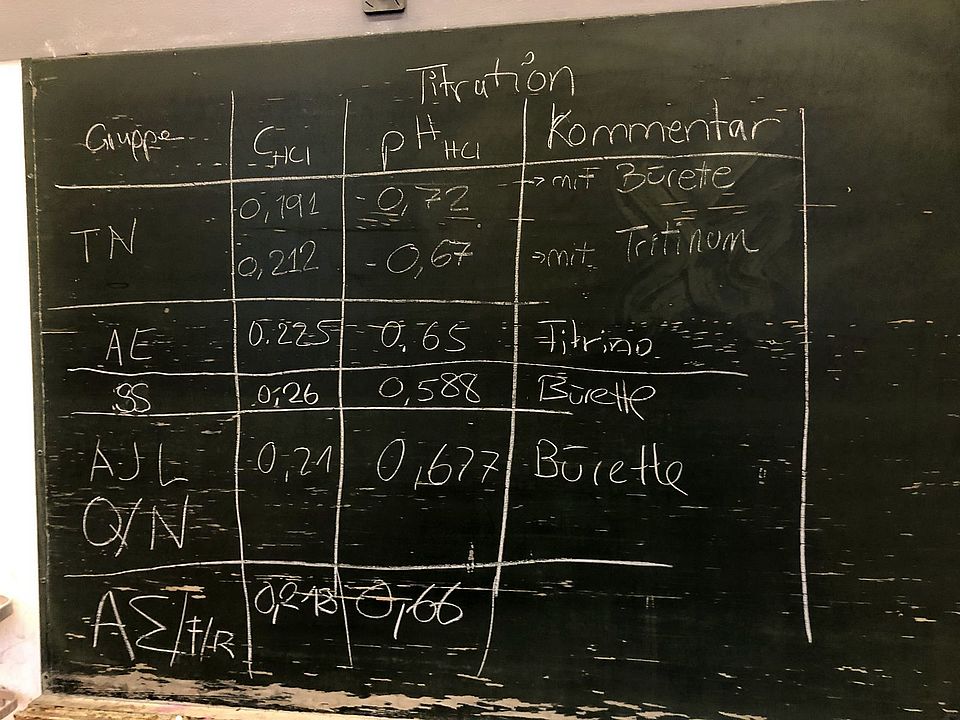 Titration
Gruppe C HCl pH HCl Kommentar
TN 0,191 0,72 → mit Bürette
0,212 0,67 → mit Tritinom
AE 0.225 0.65 Titrino
SS 0,26 0,588 Bürette
AJL 0,21 0,677 Bürette
Q/N
AΣ/F/R 0,218 0,66